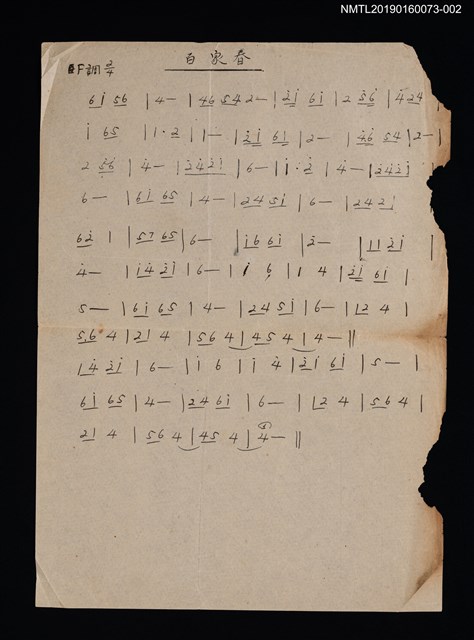 NMTL20190160073-002
百家春
F調 2/4
6i 56 | 4— | 46 542— | 2i 6i | 2 56 | 424
i 65 | 1·2 | 1— | 2i 6i | 2— | 46 54 | 2— |
2 56 | 4— | 2421 | 6— | i·2 | 4— | 2421
6— | 6i 65 | 4— | 245i | 6— | 242
62 1 | 5765 | 6— | i6 6i | 2— | 11 2i |
4— | i4 2i | 6— | i 6 | 1 4 | 2i 6i |
5— | 6i 65 | 4— | 245i | 6— | 12 4 |
5.6 4 | 21 4 | 56 4 | 45 4 | 4— ||
14 2i | 6— | i 6 | i 4 | 2i 6i | 5— |
6i 65 | 4— | 24 6i | 6— | 12 4 | 56 4 |
21 4 | 56 4 | 45 4 | 4— ||